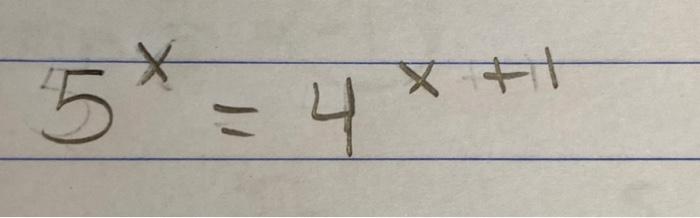 5^x = 4^{x+1}